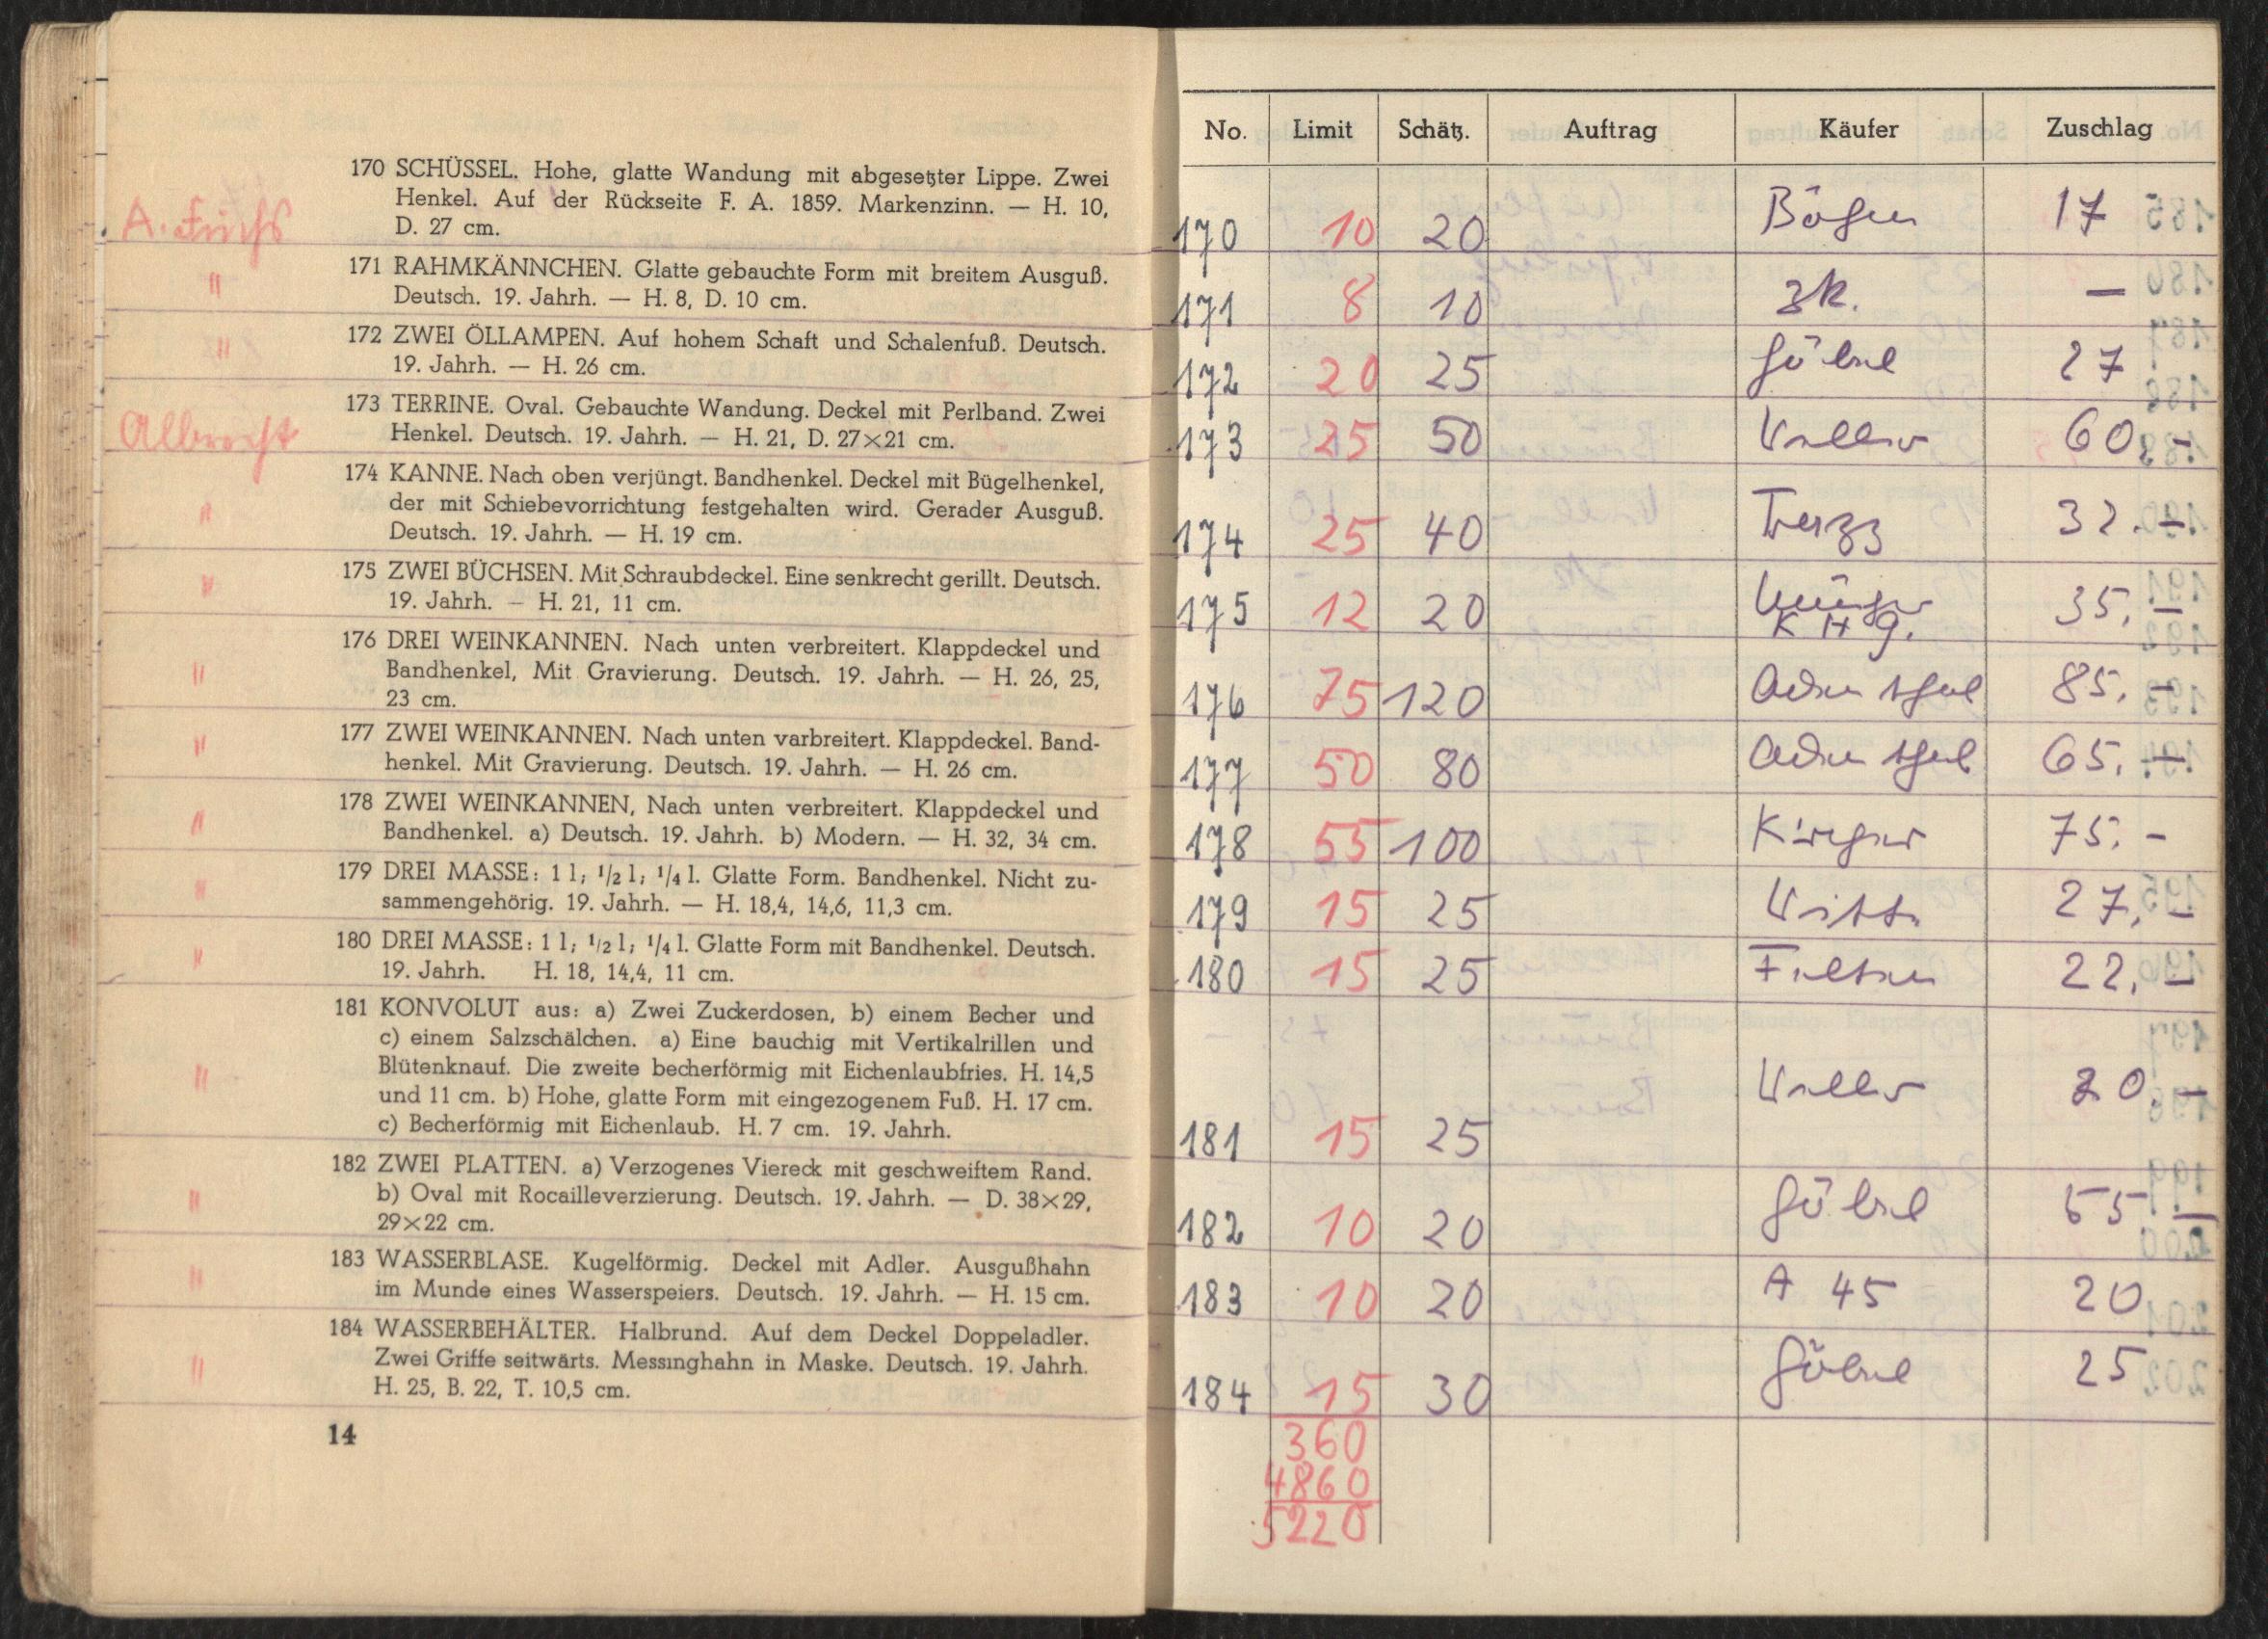 170 SCHÜSSEL. Hohe, glatte Wandung mit abgesetzter Lippe. Zwei
Henkel. Auf der Rückseite F. A. 1859. Markenzinn. — H. 10,
D. 27 cm.
A. Fuchs
171 RAHMKÄNNCHEN. Glatte gebauchte Form mit breitem Ausguß.
Deutsch. 19. Jahrh. — H. 8, D. 10 cm.
"
172 ZWEI ÖLLAMPEN. Auf hohem Schaft und Schalenfuß. Deutsch.
19. Jahrh. — H. 26 cm.
"
173 TERRINE. Oval. Gebauchte Wandung. Deckel mit Perlband. Zwei
Henkel. Deutsch. 19. Jahrh. — H. 21, D. 27×21 cm.
Albrecht
174 KANNE. Nach oben verjüngt. Bandhenkel. Deckel mit Bügelhenkel,
der mit Schiebevorrichtung festgehalten wird. Gerader Ausguß.
Deutsch. 19. Jahrh. — H. 19 cm.
"
175 ZWEI BÜCHSEN. Mit Schraubdeckel. Eine senkrecht gerillt. Deutsch.
19. Jahrh. — H. 21, 11 cm.
"
176 DREI WEINKANNEN. Nach unten verbreitert. Klappdeckel und
Bandhenkel, Mit Gravierung. Deutsch. 19. Jahrh. — H. 26, 25,
23 cm.
"
177 ZWEI WEINKANNEN. Nach unten varbreitert. Klappdeckel. Band-
henkel. Mit Gravierung. Deutsch. 19. Jahrh. — H. 26 cm.
"
178 ZWEI WEINKANNEN, Nach unten verbreitert. Klappdeckel und
Bandhenkel. a) Deutsch. 19. Jahrh. b) Modern. — H. 32, 34 cm.
"
179 DREI MASSE: 1 l; 1/2 l; 1/4 l. Glatte Form. Bandhenkel. Nicht zu-
sammengehörig. 19. Jahrh. — H. 18,4, 14,6, 11,3 cm.
"
180 DREI MASSE: 1 l; 1/2 l; 1/4 l. Glatte Form mit Bandhenkel. Deutsch.
19. Jahrh. H. 18, 14,4, 11 cm.
"
181 KONVOLUT aus: a) Zwei Zuckerdosen, b) einem Becher und
c) einem Salzschälchen. a) Eine bauchig mit Vertikalrillen und
Blütenknauf. Die zweite becherförmig mit Eichenlaubfries. H. 14,5
und 11 cm. b) Hohe, glatte Form mit eingezogenem Fuß. H. 17 cm.
c) Becherförmig mit Eichenlaub. H. 7 cm. 19. Jahrh.
"
182 ZWEI PLATTEN. a) Verzogenes Viereck mit geschweiftem Rand.
b) Oval mit Rocailleverzierung. Deutsch. 19. Jahrh. — D. 38×29,
29×22 cm.
"
183 WASSERBLASE. Kugelförmig. Deckel mit Adler. Ausgußhahn
im Munde eines Wasserspeiers. Deutsch. 19. Jahrh. — H. 15 cm.
"
184 WASSERBEHÄLTER. Halbrund. Auf dem Deckel Doppeladler.
Zwei Griffe seitwärts. Messinghahn in Maske. Deutsch. 19. Jahrh.
H. 25, B. 22, T. 10,5 cm.
"
14
No. Limit Schätz. Auftrag Käufer Zuschlag
170 10 20 17
171 8 10 zk. —
172 20 25 Göbel 27
173 25 50 60.-
174 25 40 32.-
175 12 20 35.-
K H G.
176 75 120 85.-
177 50 80 65.-
178 55 100 75.-
179 15 25 27.-
180 15 25 22.-
181 15 25 20.-
182 10 20 Göbel 55.—
183 10 20 A 45 20
184 15 30 Göbel 25
360
4860
5220